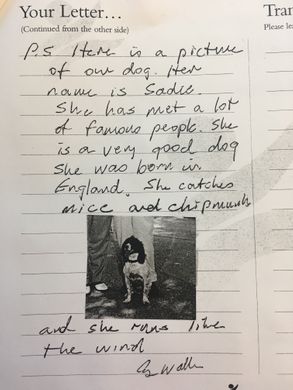 Your Letter…
(Continued from the other side)
P.S Here is a picture
of our dog. Her
name is Sadie.
She has met a lot
of famous people. She
is a very good dog
She was born in
England. She catches
mice and chipmunk
and she runs like
the wind
Tran
Please le